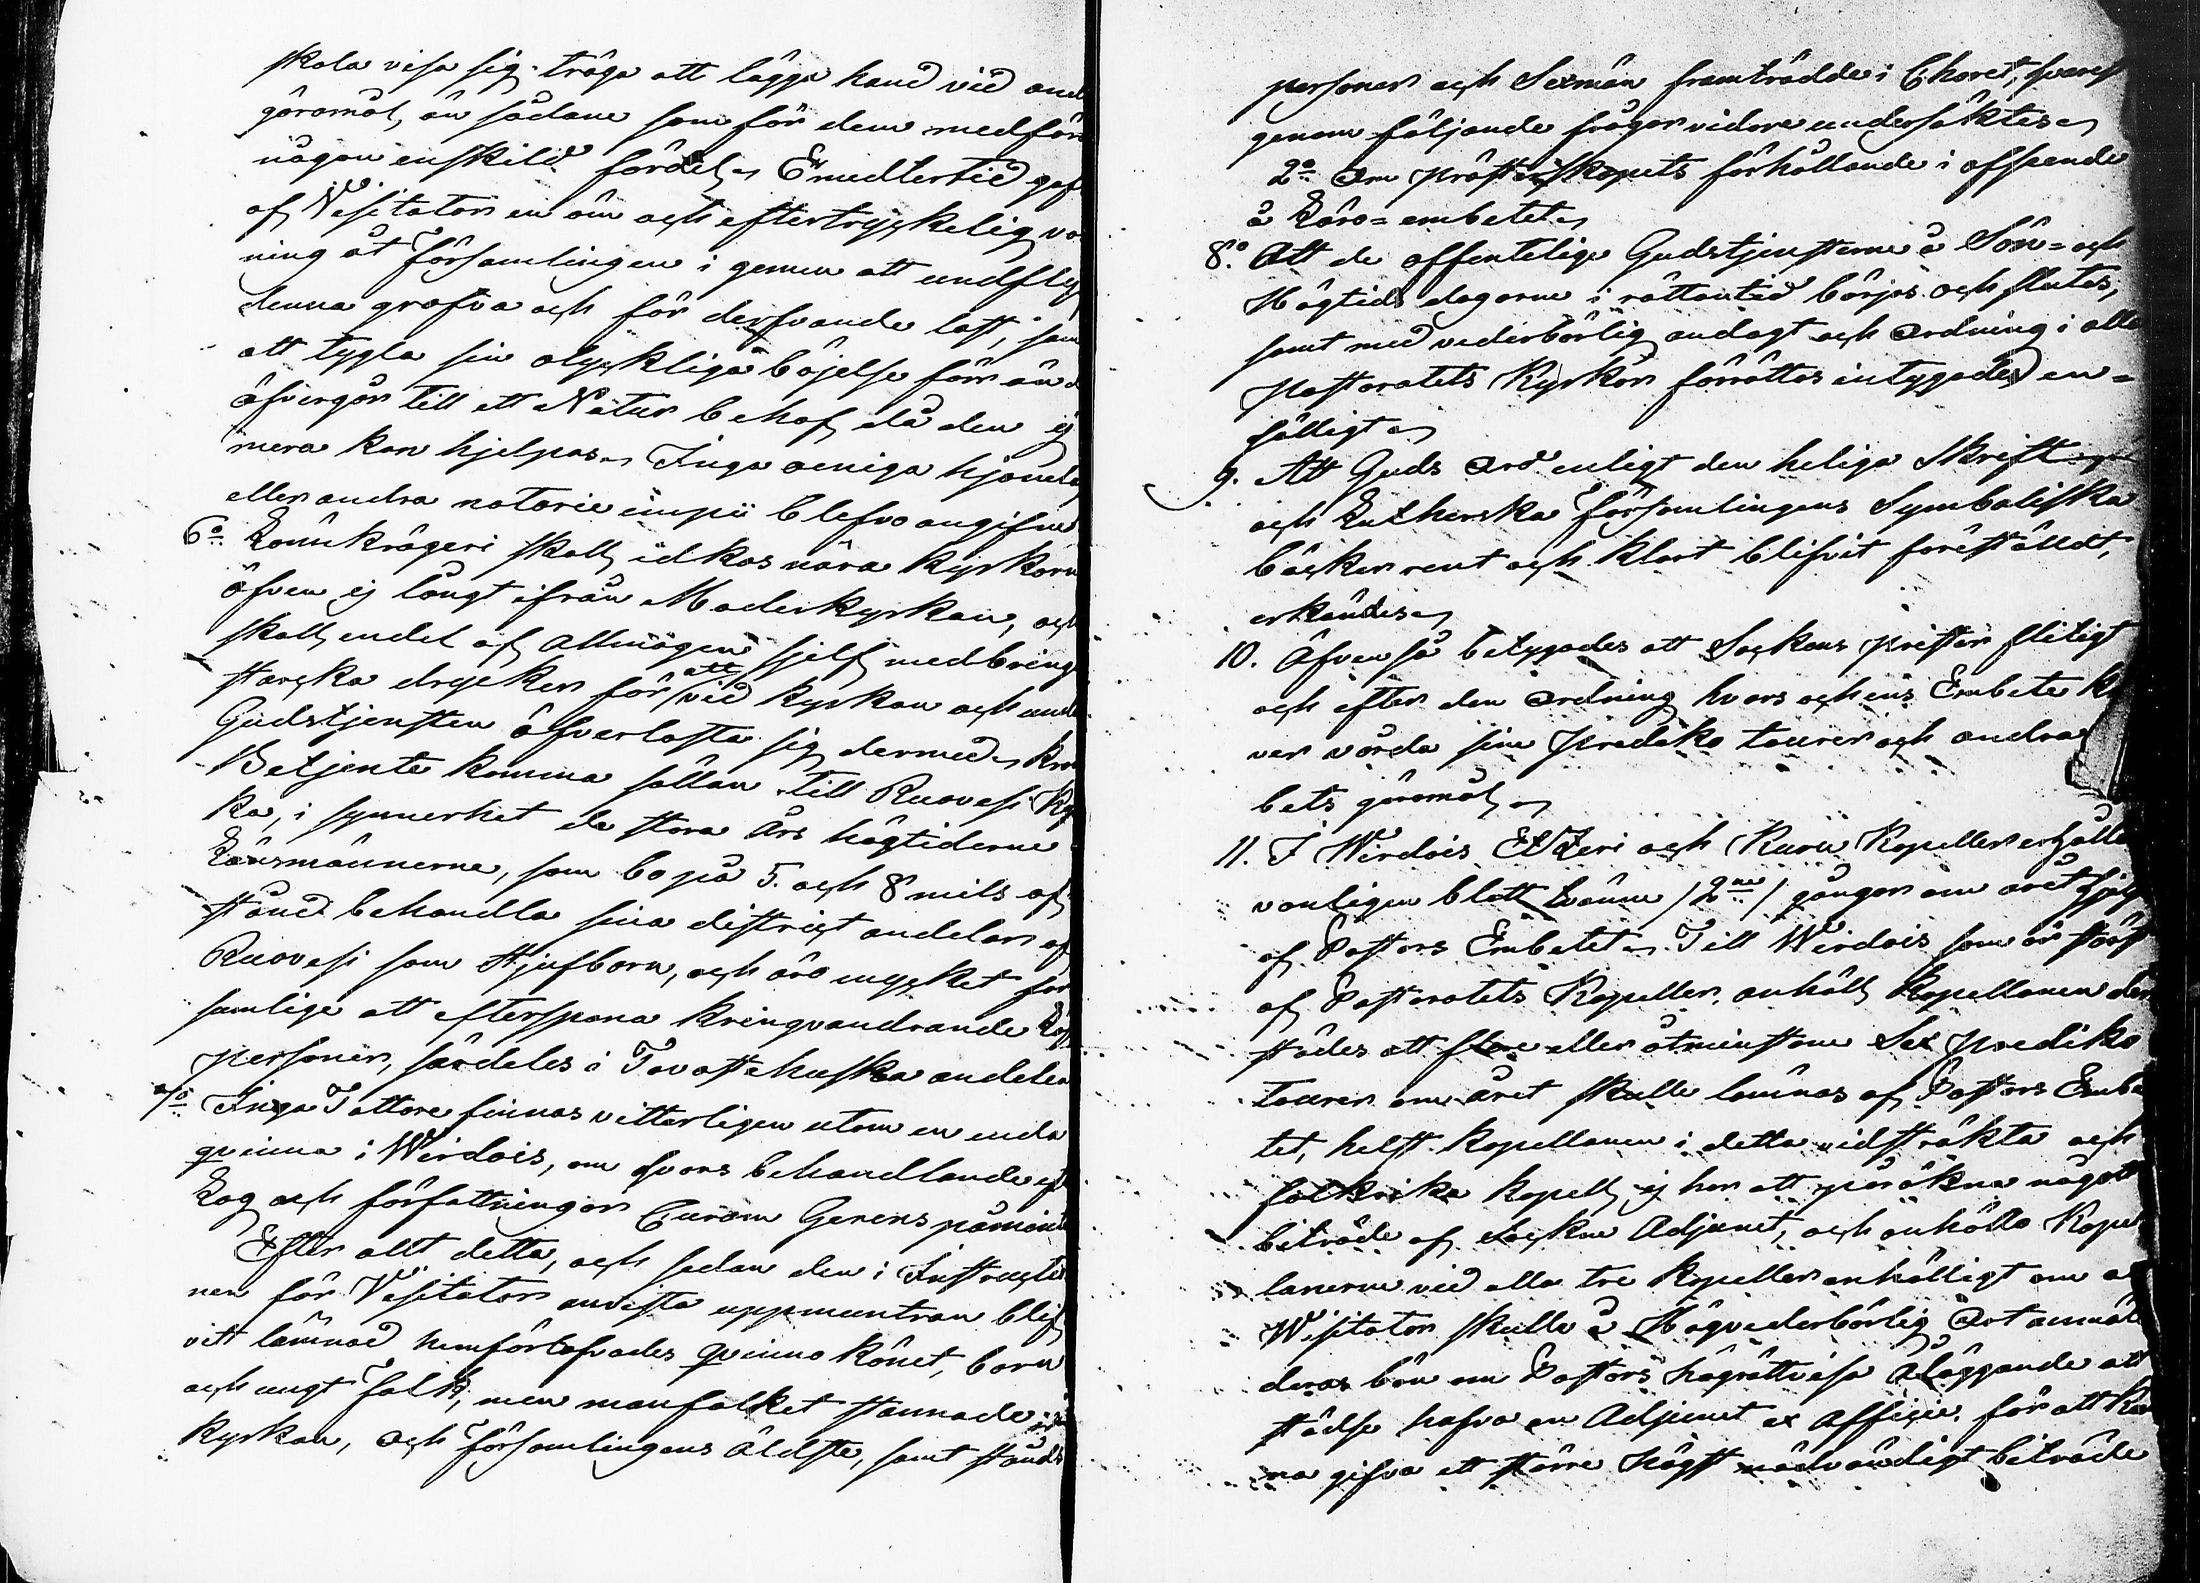 skola visa sig tröga att lägga hand vid and
göromål, än sådane som för dem medför
någon enskild fördel. Emedlertid gafs
af Visitator en öm och eftertryckelig var
ning åt Församlingen i gemen att undfly
denna grofva och för derfvande last, samt
att tygla sin olyckliga böjelse förr än d
öfvergår till ett Natur behof, då den ej
mera kan hjelpas. Inga oeniga hjonela
eller andra notorie impii blefvo angifne
6:o Lönnkrögeri skall idkas nära kyrkorne
öfven ej långt ifrån Moderkyrkan, och
skall endel af Allmogen sjelf medbringa
starcka drycker för att vid kyrkan och unde
Gudstjensten öfverlasta sig dermed. Kro
Betjente komma sällan till Ruovesi Kyr
ka, i synnerhet de stora Års högtiderne
Länsmännerne, som bo på 5. och 8 mils af
stånd behandla sina distrigt andelar af
Ruovesi som Stjufborn, och äro mycket för
samlige att efterspana kringvandrande Lös
personer, särdeles i Tavastehuska andelen
7:o Inga Tattare finnas vitterligen utom en enda
qvinna i Wirdois, om hvars behandlande eft
Lag och författningar Curam Gerens påmint
Efter allt detta, och sedan den i Instructio
nen för Visitator anvista uppmuntran blif
vit lämnad hemförlofvades qvinno könet, barn
och ungt Folk, men manfolket stannade i
kyrkan, och Församlingens Äldste, samt stånds
personer och Sexmän framträdde i Choret, hvarest
genom följande frågor vidare undersöktes.
2:o Om prästerskapets förhållande i afseende
å Läro=embetet.
8:o Att de offentelige Gudstjensterne å Sön= och
Högtids dagarne i rättan tid börjas och slutas,
samt med vederbörlig andagt och Ordning i alla
Pastoratets Kyrkor förrättas intygades en=
hälligt.
9. Att Guds Ord enligt den heliga Skrift
och Lutherska Församlingens Symboliska
böcker rent och klart blifvit föreställdt,
erkändes.
10. Äfven så betygades att Sockens prester flitigt
och efter den Ordning hvars och ens Embete krä
ver vårda sina Prediko tourer och andra
bets göromål.
11. I Wirdois Etzeri och Kuru Kapeller erhålla
vanligen blott tvänne /2ne/ gånger om året hjelp
af Pastors Embetet. Till Wirdois som är störst
af Pastoratets Kapeller, anhöll Kapellanen der
städes att flere eller åtminstone Sex prediko
tourer om året skulle lämnas af Pastors Embe
tet, helst Kapellanen i detta vidsträkta och
folkrika Kapell ej har att påräkna någott
biträde af Sockne Adjunct, och anhöllo Kapel
lanerne vid alla tre Kapeller enhälligt om a
Wisitator skulle å Högvederbörlig Ort anmäla
deras bön om Pastors högrättvisa Åläggande att
städse hafva en Adjunct ex officio, för att kun
na gifva ett större högst nödvändigt biträde